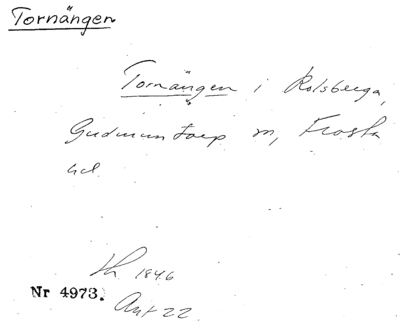 Tornängen
Tornängen i Rolsberga,
Gudmuntorp sn, Frosta
hd.
Lh 1846
Nr 4973.
Ant 22